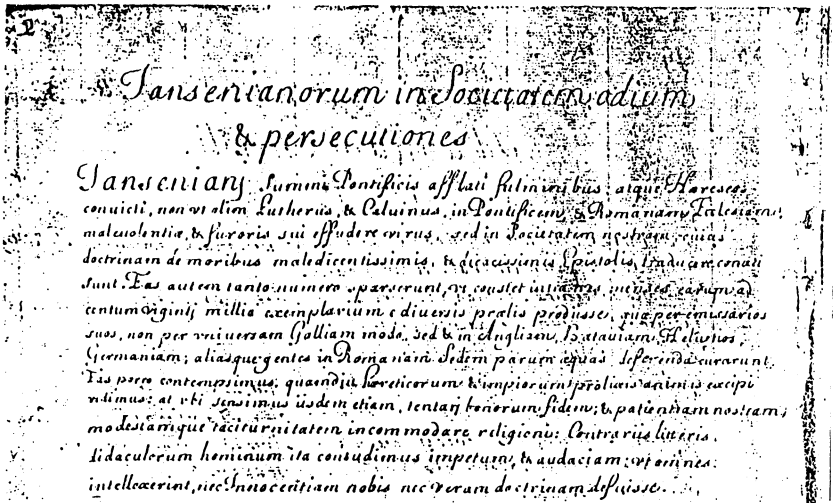 Jansenianorum in Societatem odium,
& persecutiones
Janseniani Summi Pontificis afflati fulminibus, atque Hæreseos
convicti, non vt olim Lutherus, & Caluinus, in Pontificem, & Romanam Ecclesiam,
maleuolentiæ, & furoris sui effudere virus, sed in Societatem nostram, cuius
doctrinam de moribus maledicentissimis, & dicacissimis Epistolis traducere conati
sunt. Eas autem tanto numero sparserunt, vt constet intra menses earum ad
centum viginti millia exemplarium e diuersis prælis prodijsse, quæ per emissarios
suos, non per vniuersam Galliam modo, sed & in Angliam, Batauiam, Heluetios,
Germaniam; aliasque gentes in Romanam Sedem parum æquas deferenda curarunt.
Eas porro contempsimus, quamdiu hæreticorum & impiorum animis excipi
vidimus: at vbi sensimus ijsdem etiam, tentari bonorum fidem; & patientiam nostram,
modestiamque taciturnitatem incommodare religioni: Contrarijs litteris,
hominum ita contudimus impetum, & audaciam, vt omnes
intellexerint, nec Innocentiam nobis nec veram doctrinam defuisse.